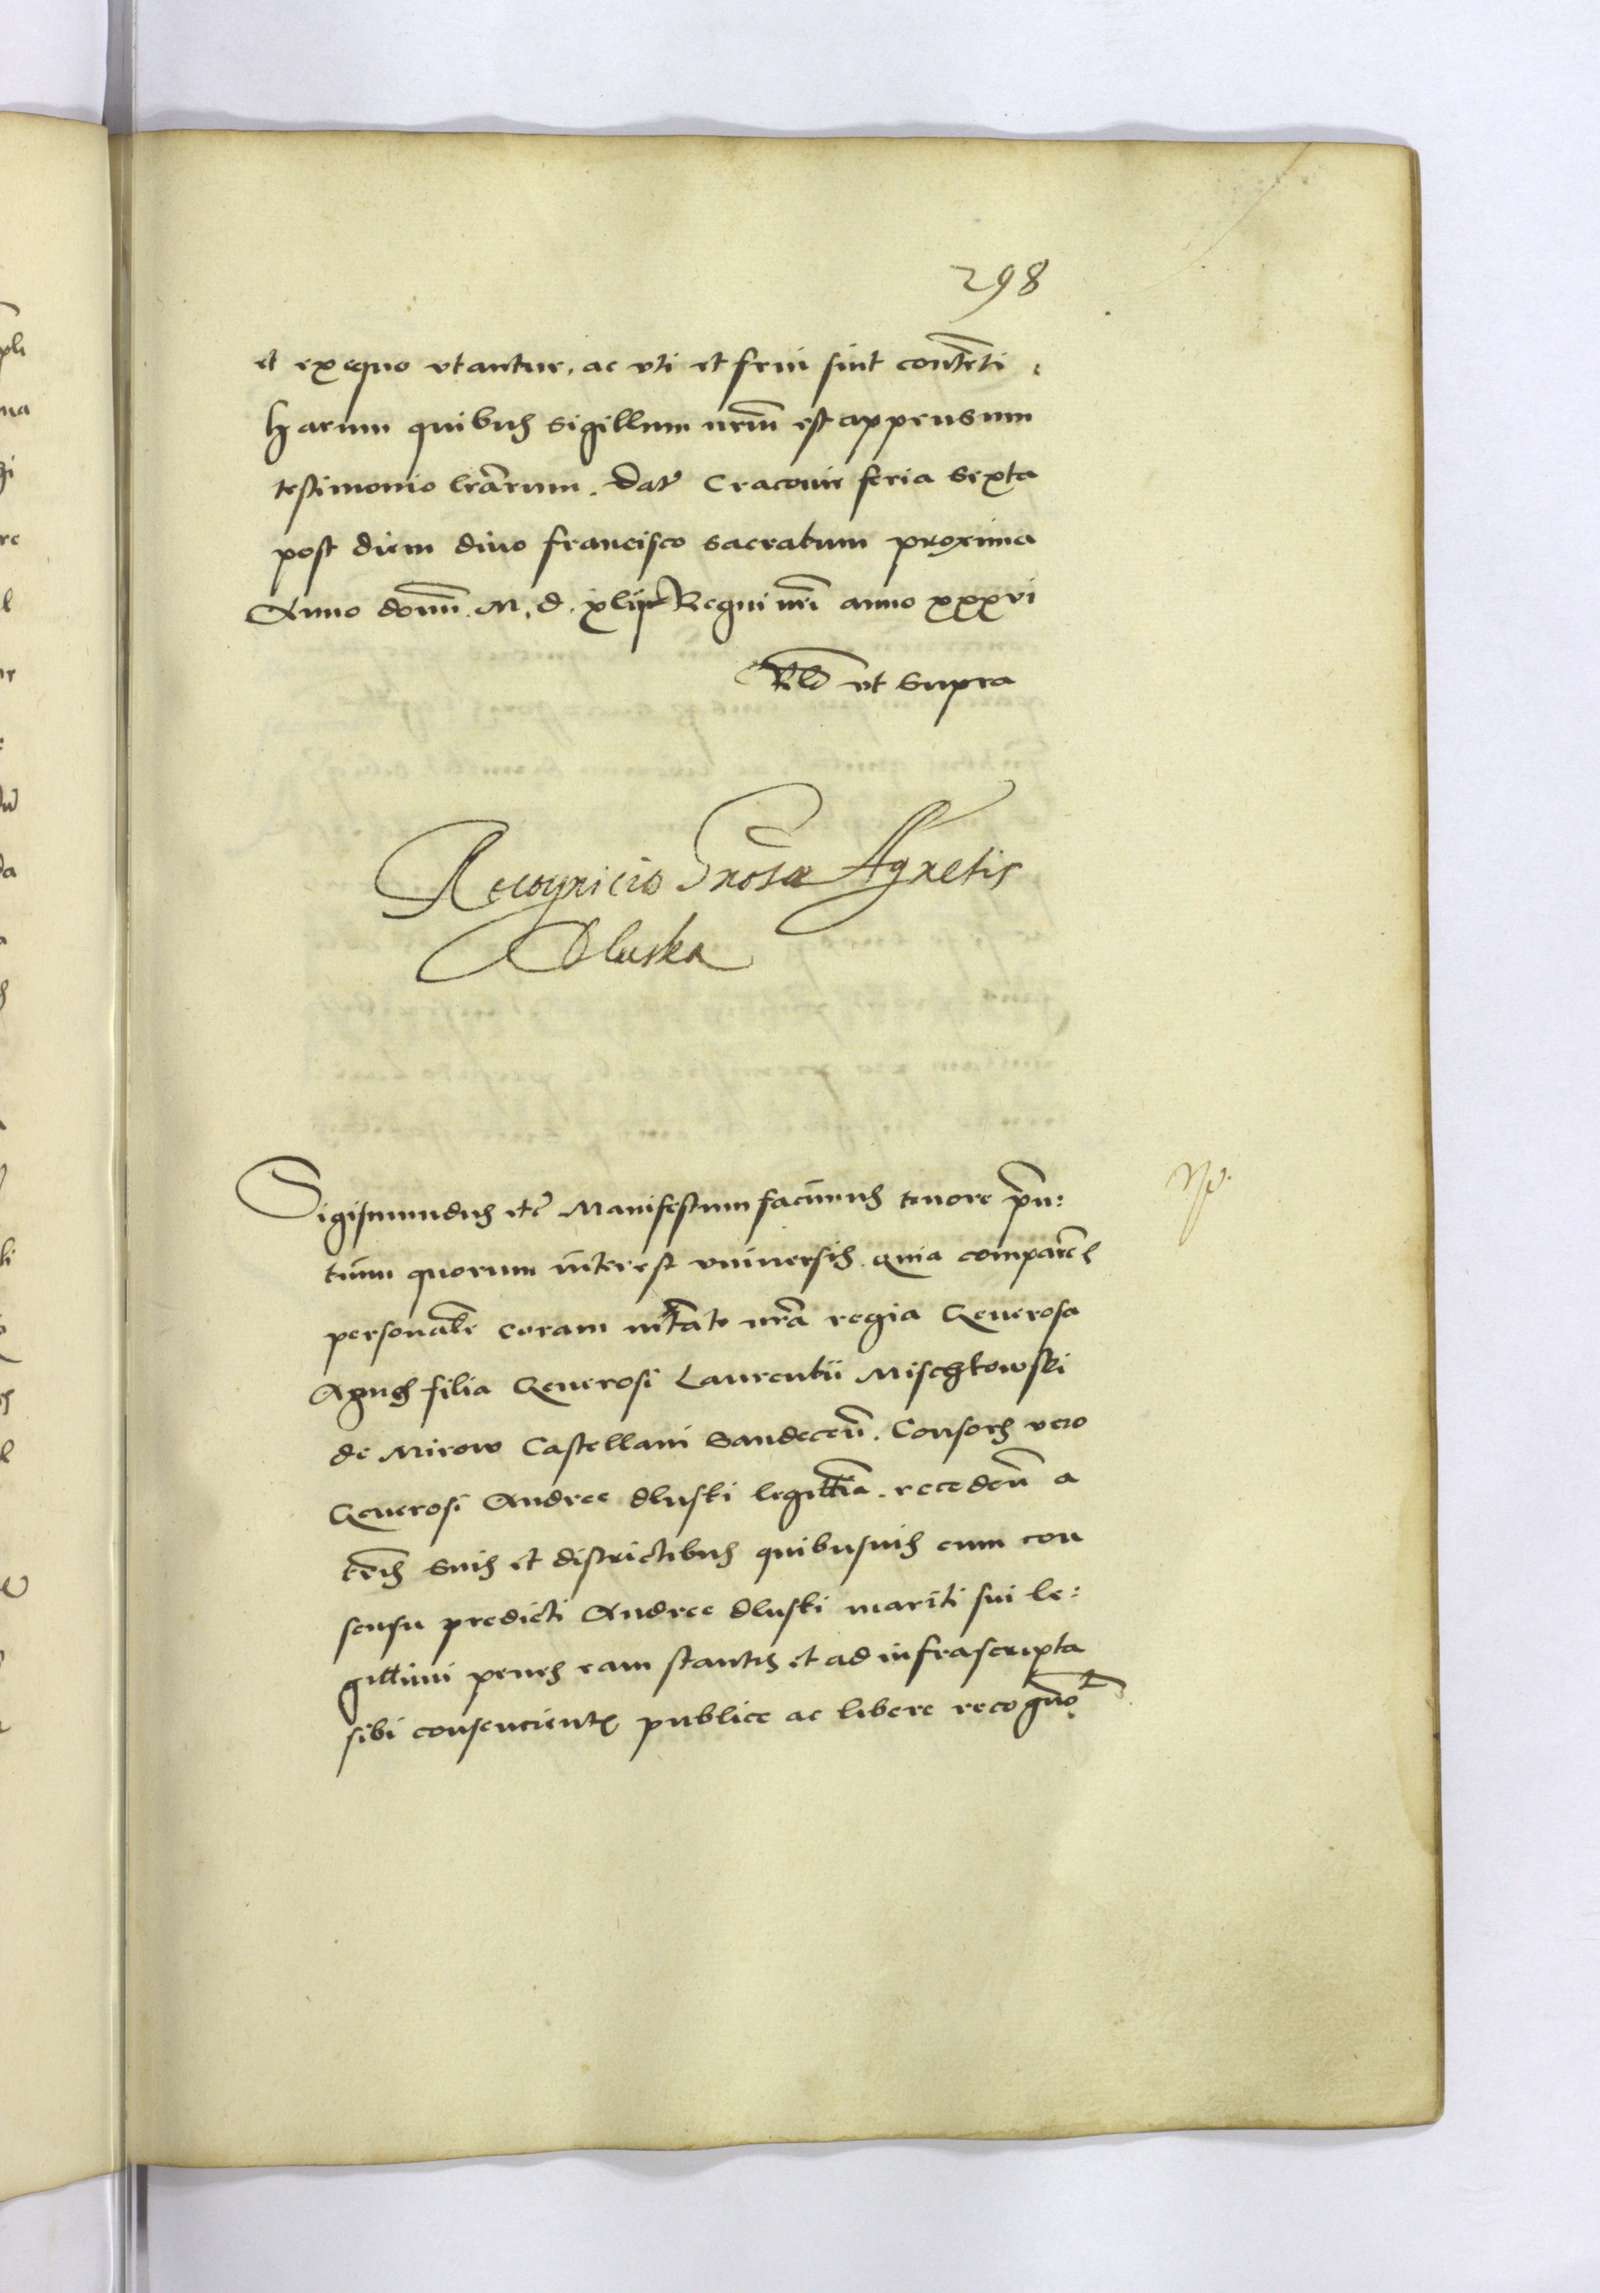 298
et exequo vtantur, ac vti et frui sint contēti.
harum quibus sigillum nrm̄ est appensum
testimonio lrārum. Dat̄ Cracovie feria sexta
post diem divo francisco sacratum proxima
Anno domī. M. d. xlij Regni nrī anno xxxvi
Rlō vt supra
Recognicio Gnosæ Agnetis
Dluska
Sigismundus etc̄ Manifestum facimus tenore pn̄:
tium quorum interest vniversis. quia comparēs
personalr̄ coram mtāte nrā regia Generosa
Agnes filia Generosi Laurentii Mischkowski
de Mirow Castellani Sandeceñ. Consors vero
Generosi Andree dluski legittīa. recedeñ a
terīs suis et districtibus quibusuis cum con
sensu predicti Andree dluski mariti sui le:
gittimi penes eam stantis et ad infrascripta
sibi consencientis publice ac libere recognoᵗ